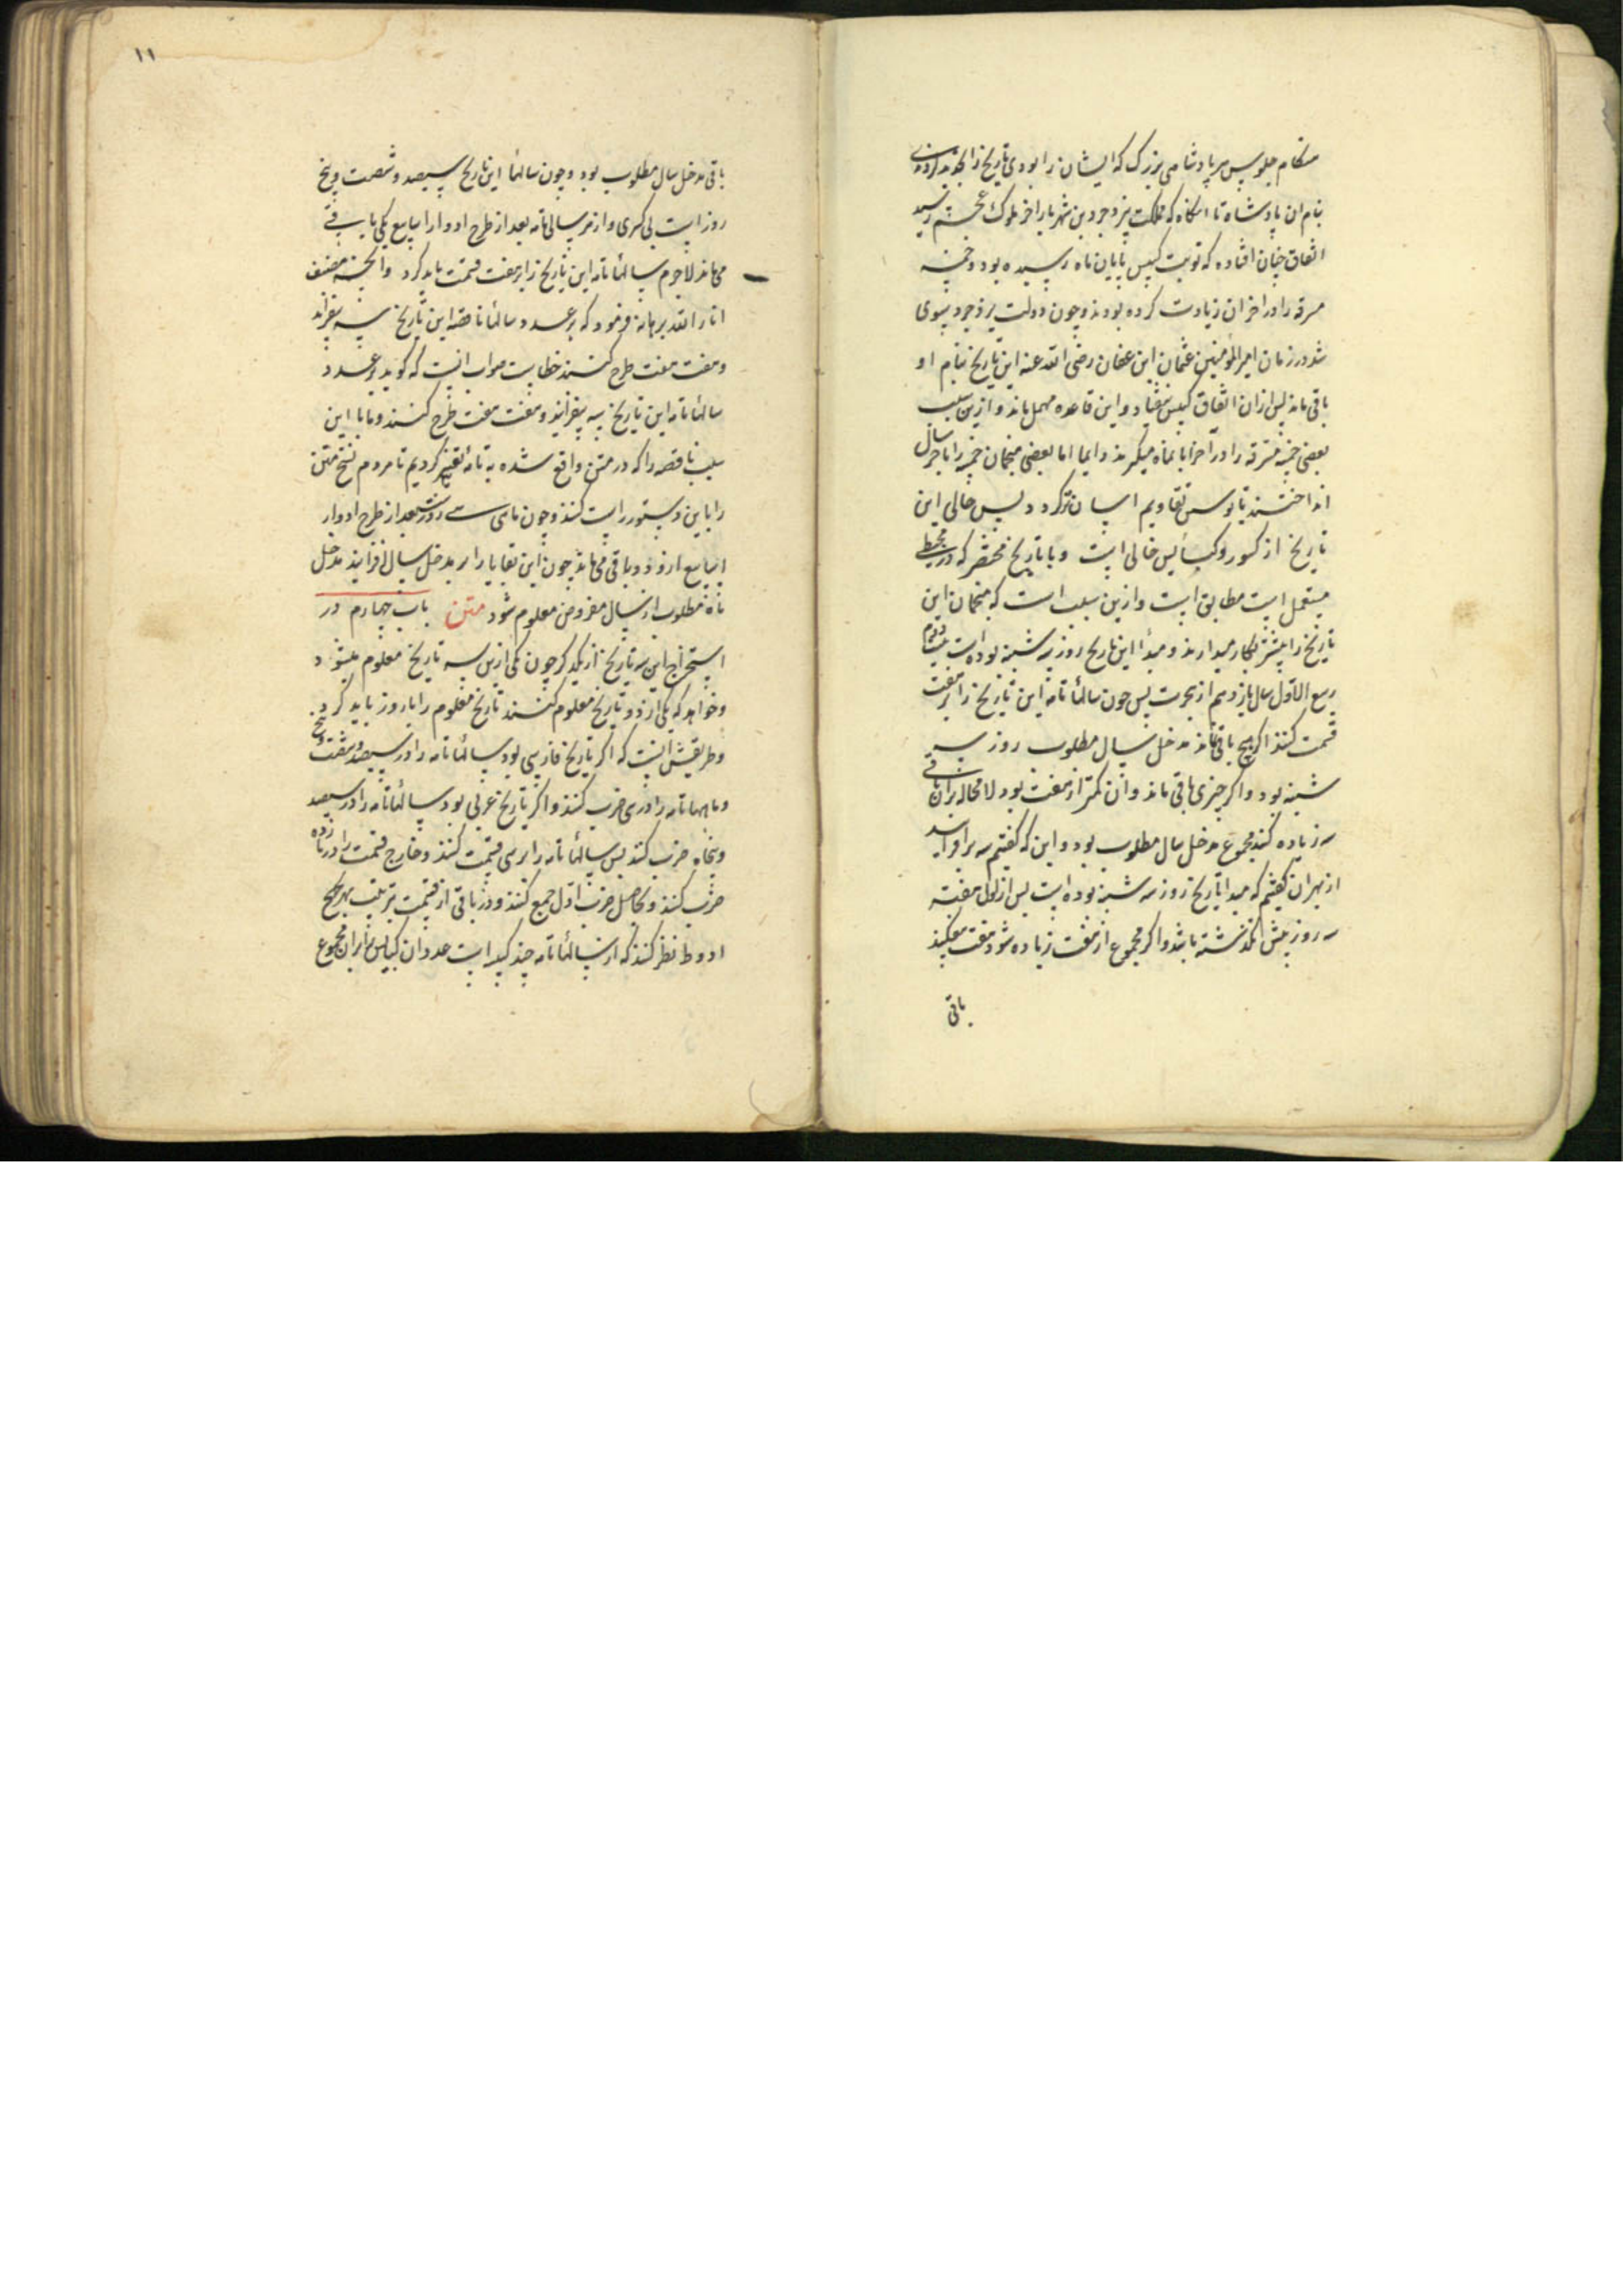 هنکام جلوس هر پادشاهی بزرک که ایشان را بودی تاریخ را
بنام ان پادشاه تا انکاه که مملکت یزدجرد بن شهریار اخر ملوک عجم رسید
اتفاق چنان افتاده که نوبت کبیس بآبان ماه رسیده بود و خمسه
مسرقه را در اخر ان زیادت کرده بودند و چون دولت یزدجرد سپری
شد در زمان امیر المؤمنین عثمان ابن عفان رضی الله عنه این تاریخ بنام او
باقی ماند پس از ان اتفاق کبیس نیفتاد و این قاعده مهمل ماند و ازین سبب
بعضی خمسه مسترقه را در آخر آبانماه میکیرند دایما اما بعضی منجمان خمسه را بآخر سال
انداختند تا تقاویم اسان کردد پس سال این
تاریخ از کسور و کبایس خالی است و با تاریخ مختصر که در مجسطی
مستعمل است مطابق است و ازین سبب است که منجمان این
تاریخ را بیشتر بکار میدارند و مبدأ این تاریخ روز سه شنبه بوده است بیست دوم
ربیع الاول سال یازدهم از هجرت پس چون سالهاء تامه این تاریخ را بر هفت
قسمت کنند اکر هیچ باقی نماند مدخل سال مطلوب روز سه
شنبه بود و اکر چیزی باقی ماند و ان کمتر از هفت بود لا محاله بران باقی
سه زیاده کنند مجموع مدخل سال مطلوب بود و این که کفتیم سه برافزایند
از بهر ان کفتیم که مبدا تاریخ روز سه شنبه بوده است پس از اول هفته
سه روز بیش نکذشته باشد و اکر مجموع از هفت زیاده شود هفت بیفکنند
باقی
۱۱
باقی مدخل سال مطلوب بود و چون سالهاء این تاریخ سیصد و شصت و پنج
روز است بی کسری و از هر سالی تامه بعد از طرح ادوار اسابیع یکی باقی
می ماند لاجرم سالهاء تامه این تاریخ را بر هفت قسمت باید کرد و انچه مصنف
انار الله برهانه فرمود که بر عدد سالهاء ناقصه این تاریخ سه بیفزایند
و هفت هفت طرح کنند خطاست صواب انست که کوید بر عدد
سالهاء تامه این تاریخ سه بیفزایند و هفت هفت طرح کنند و ما با این
سبب ناقصه را که در متن واقع شده به تامه تغییر کردیم تا مردم نسخ متن
را باین دستور راست کنند و چون ماهی سی روز است بعد از طرح ادوار
اسابیع از و دو باقی می ماند چون این بقایا را بر مدخل سال افزایند مدخل
ماه مطلوب از سال مفروض معلوم شود متن باب چهارم در
استخراج این سه تاریخ از یکدیکر چون یکی ازین سه تاریخ معلوم بود
و خواهد که یکی از دو تاریخ معلوم کنند تاریخ معلوم را با روز باید کرد
و طریقش انست که اکر تاریخ فارسی بود سالهاء تامه را در سیصد و شصت و پنج
و ماههاء تامه را در سی ضرب کنند و اکر تاریخ عربی بود سالهاء تامه را در سیصد
و پنجاه ضرب کنند پس سالهاء تامه را بر سی قسمت کنند و خارج قسمت را در یازده
ضرب کنند و بحاصل ضرب اول جمع کنند و در باقی از قسمت بترتیب بهزیجح
ادوط نظر کنند که از سالهاء تامه چند کبیسه است عدد ان کبایس را بران مجموع